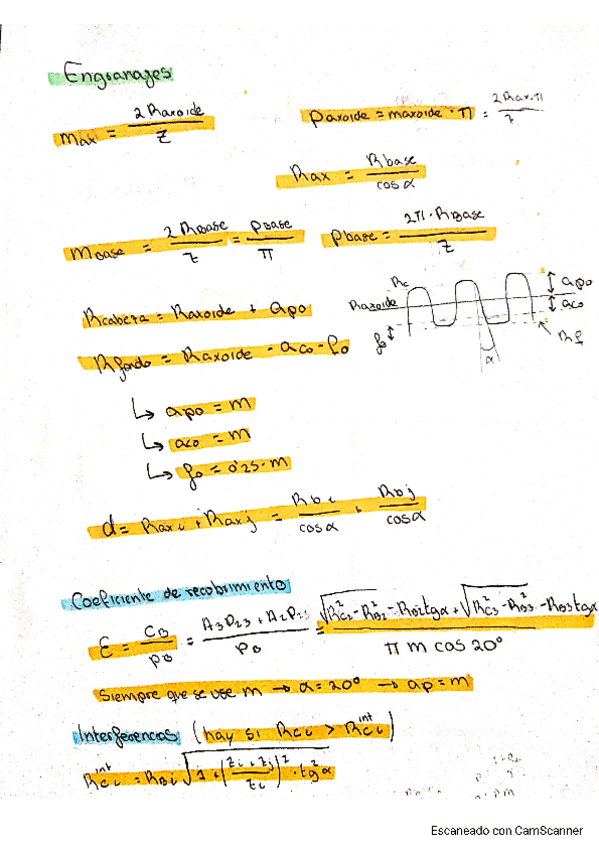 Engranajes
m_axi = 2 Raxoide / Z
Paxoide = maxoide · π = 2Rax·π / z
Rax = Rbase / cos α
m_base = 2 Rbase / z = Pbase / π
Pbase = 2π · Rbase / z
Rcabeza = Raxoide + apo
Rfondo = Raxoide - aco - fo
Rc
Raxoide
apo
aco
fo
Rf
α
↳ apo = m
↳ aco = m
↳ fo = 0'25 · m
d = Raxi + Raxj = Rbi / cos α + Rbj / cos α
Coeficiente de recobrimiento
ε = CB / PB = A3P23 + A2P23 / PB = √(Rc2² - Rb2²) - Rb2 tg α + √(Rc3² - Rb3²) - Rb3 tg α / π m cos 20°
Siempre que se use m → α = 20° → ap = m
Interferencias (hay si Rci > Rci^int)
Rci^int = Rbi √(1 + (zi + zj / zi)² · tg² α)
Escaneado con CamScanner